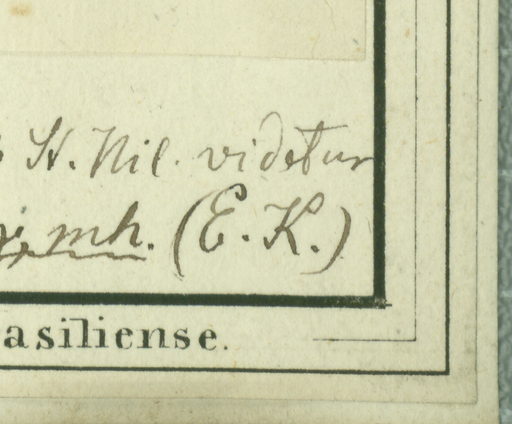 H. Nil. videtur
mh. (E. K.)
asiliense.